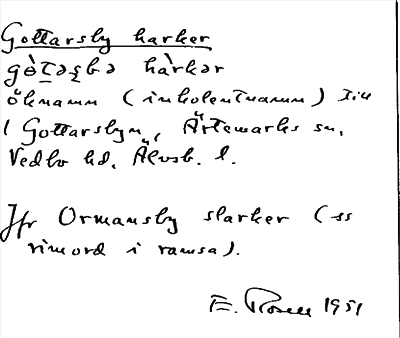 Gottarsby harker
gòt̲əʂbə hàrkər
öknamn (inkolentnamn) till
l Gottarsbyn, Ärtemarks sn,
Vedbo hd, Älvsb. l.
Jfr Ormansby slarker (ss
rimord i ramsa).
E. Rosell 1951